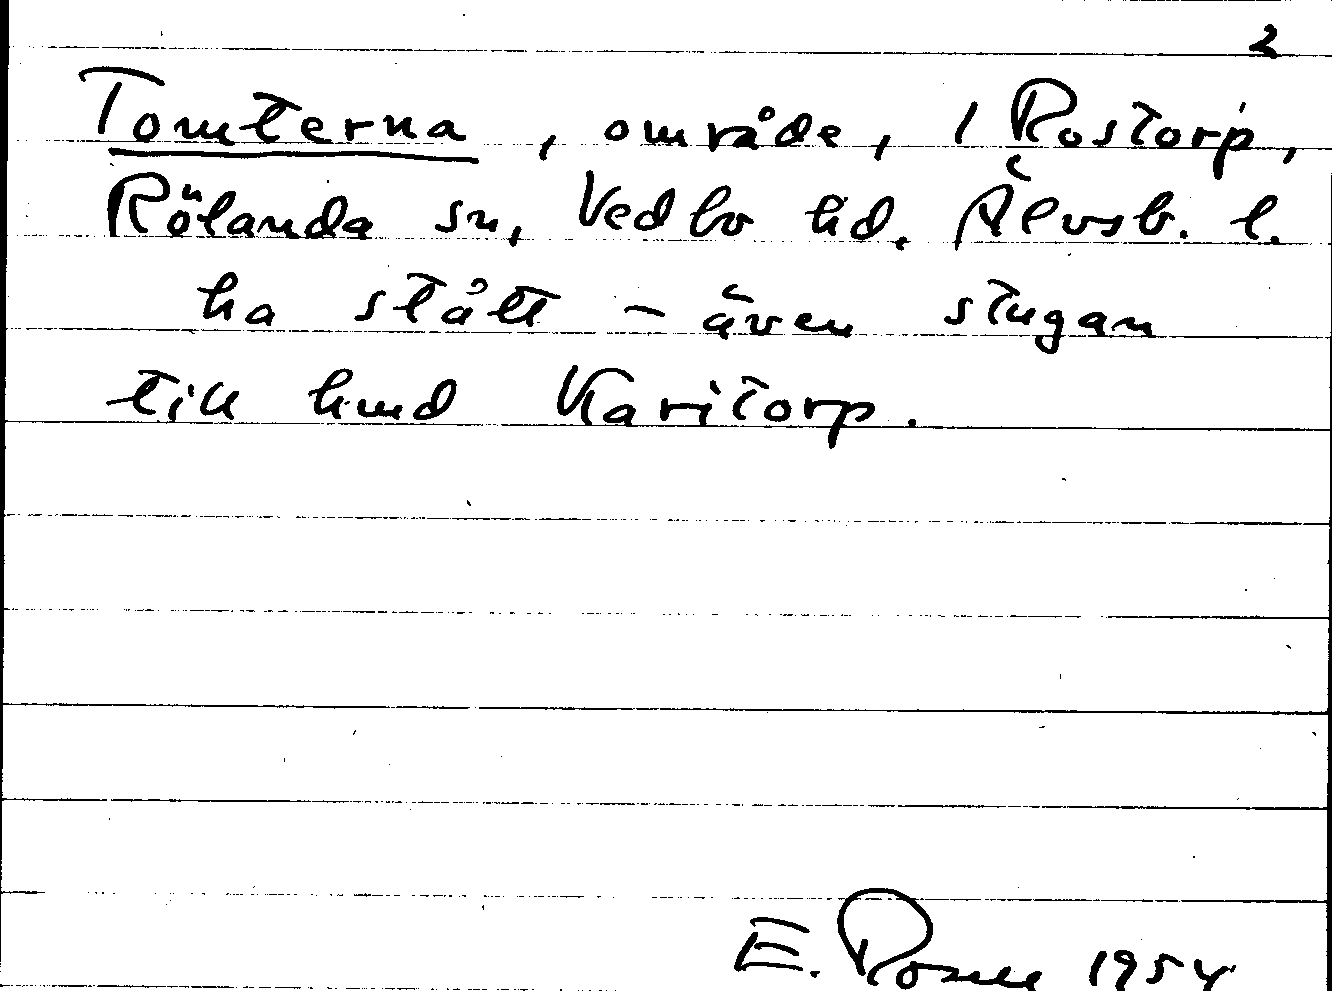 2
Tomterna, område, 1 Rostorp,
Rölanda sn, Vedbo hd. Älvsb. l.
ha stått – även stugan
till hmd Karitorp.
E. Rosell 1954